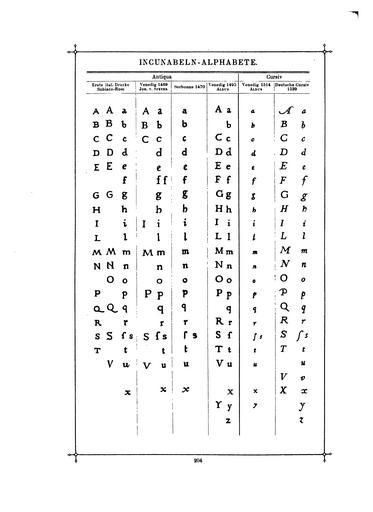 INCUNABELN-ALPHABETE.
Antiqua Cursiv
Erste ital. Drucke Venedig 1469 Sorbonne 1470 Venedig 1495 Venedig 1514 Deutsche Cursiv
Subiaco-Rom Joh. v. Speyer Aldus Aldus
A A a A a a A a a A a
B B b B b b b b B b
C C c C c c C c c C c
D D d d d D d d D d
E E e e e E e e E e
f f f f F f f F f
G G g g g G g g G g
H h h h H h h H h
I i I i i I i i I i
L l l l L l l L l
M M m M m m M m m M m
N N n n n N n n N n
O o o o O o o O o
P p P p p P p p P p
Q Q q q q q q Q q
R r r r R r r R r
S S ſ s S ſ s ſ s S ſ ſ s S ſ s
T t t t T t t T t
V u V u u V u u u
V v
x x x x x X x
Y y y y
z z
204